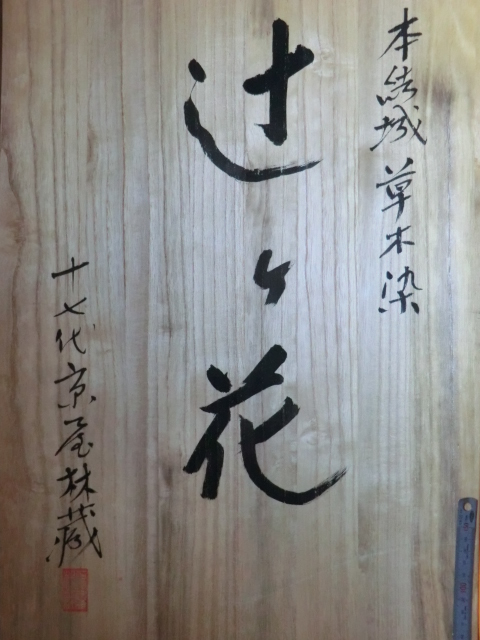 本結城 草木染
辻ヶ花
十七代京屋林蔵